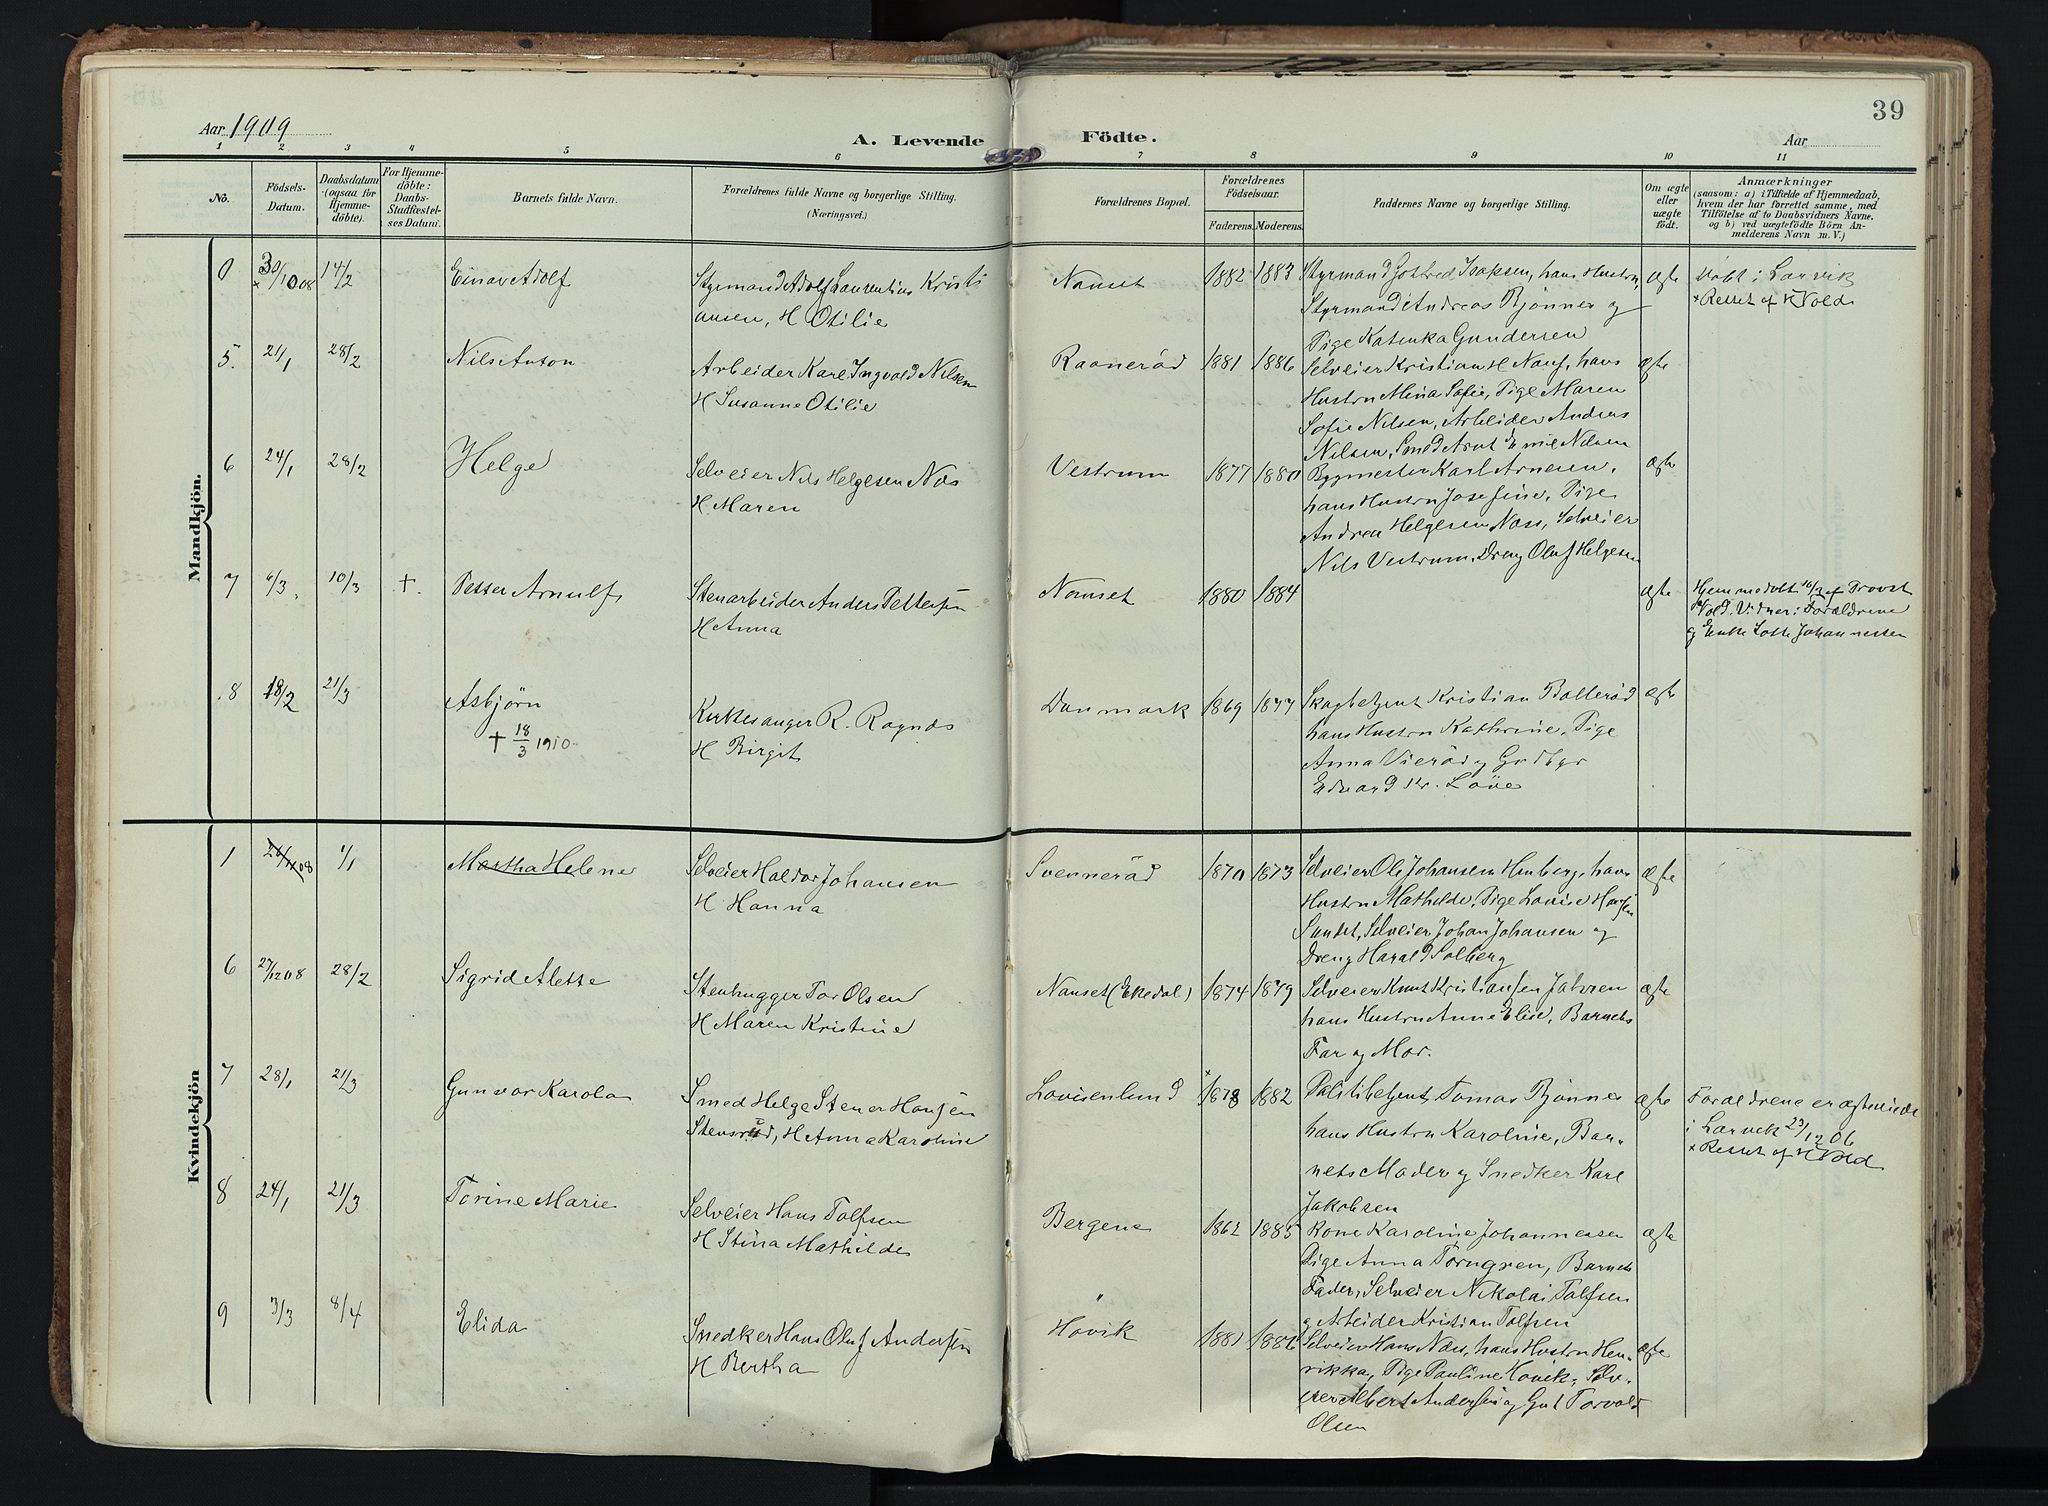 39
Aar 1909
A. Levende Födte.
Aar
1 2 3 4 5 6 7 8 9 10 11
No.
Födsels-Datum.
Daabsdatum (ogsaa for Hjemme-döbte).
For Hjemme-döbte: Daabs-Stadfæstel-ses Datum.
Barnets fulde Navn.
Forældrenes fulde Navne og borgerlige Stilling.
(Næringsvei.)
Forældrenes Bopæl.
Forældrenes Födselsaar.
Faderens. Moderens.
Faddernes Navne og borgerlige Stilling.
Om ægte eller uægte födt.
Anmærkninger
(saasom: a) i Tilfælde af Hjemmedaab,
hvem der har forrettet samme, med
Tilföielse af to Daabsvidners Navne,
og b) ved uægtefödte Börn An-
melderens Navn m. V.)
Mandkjön.
0 30/10 08 14/2 Einar Adolf Styrmand Adolf Laurentius Kristi
ansen, H Otilie
Nanset 1882 1883 Styrmand Gotfred Isaksen, hans Hustru,
Styrmand Andreas Bjönnes og
Pige Katinka Gundersen
ægte Döbt i Larvik
× Rettet af H Vold
5. 21/1 28/2 Nils Anton Arbeider Karl Ingvald Nilsen
H Susanne Otilie
Raaneröd 1881 1886 Selveier Kristian H Nauf, hans
Hustru Mina Sofie, Pige Maren
Sofie Nilsen, Arbeider Anders
Nilsen, Smed Arnt Emil Nilsen
ægte
6 24/1 28/2 Helge Selveier Nils Helgesen Næs
H Maren
Vestrum 1877 1880 Bygmester Karl Arnesen,
hans Hustru Josefine, Pige
Andrea Helgesen Næss, Selveier
Nils Vestrum, Dreng Oluf Helgesen
ægte
7 6/3 10/3 + Petter Arnulf Stenarbeider Anders Pettersen
H Anna
Nanset 1880 1884 ægte
Hjemmedöbt 10/3 af Provst
Vold. Vidner: Forældrene
og Enke Lotte Johannessen
8 18/2 21/3 Asbjörn
+ 18/3 1910
Kirkesanger R. Ragnås
H Birgit
Danmark 1869 1877 Skogbetjent Kristian Bollerød
hans Hustru Kathrine, Pige
Anna Vierød og Grdbgr
Edvard Kr. Løve
ægte
Kvindekjön
1 26/11 08 1/1 Martha Helene Selveier Haldor Johansen
H Hanna
Svenneröd 1870 1873 Selveier Ole Johansen Hauberg, hans
Hustru Mathilde, Pige Lovise Hansen
Sundet, Selveier Johan Johansen og
Dreng Harald Solberg
ægte
6 27/12 08 28/2 Sigrid Alette Stenhugger Tor Olsen
H Maren Kristine
Nanset (Ekedal) 1874 1879 Selveier Knut Kristiansen Jahren
hans Hustru Anne Elise, Barnets
Far og Mor.
ægte
7 28/1 21/3 Gunvor Karola Smed Helge Stener Hansen
Stensröd, H Anna Karoline
Lovisenlund × 1878 1882 Politibetjent Tomas Bjönnes
hans Hustru Karoline, Bar-
nets Moder og Snedker Karl
Jakobsen
ægte Forældrene er ægteviede
i Larvik 23/12 06
× Rettet af H Vold
8 24/1 21/3 Torine Marie Selveier Hans Tolfsen
H Stina Mathilde
Bergene 1862 1885 Kone Karoline Johannessen
Pige Anna Torngren, Barnets
Fader, Selveier Nikolai Tolfsen
og Arbeider Kristian Tolfsen
ægte
9 3/3 8/4 Elida Snedker Hans Oluf Andersen
H Bertha
Hovik 1881 1886 Selveier Hans Næss, hans Hustru Hen-
rikka, Pige Pauline Hovik, Selv-
eier Albert Andersen og Gut Torvald
Olsen
ægte